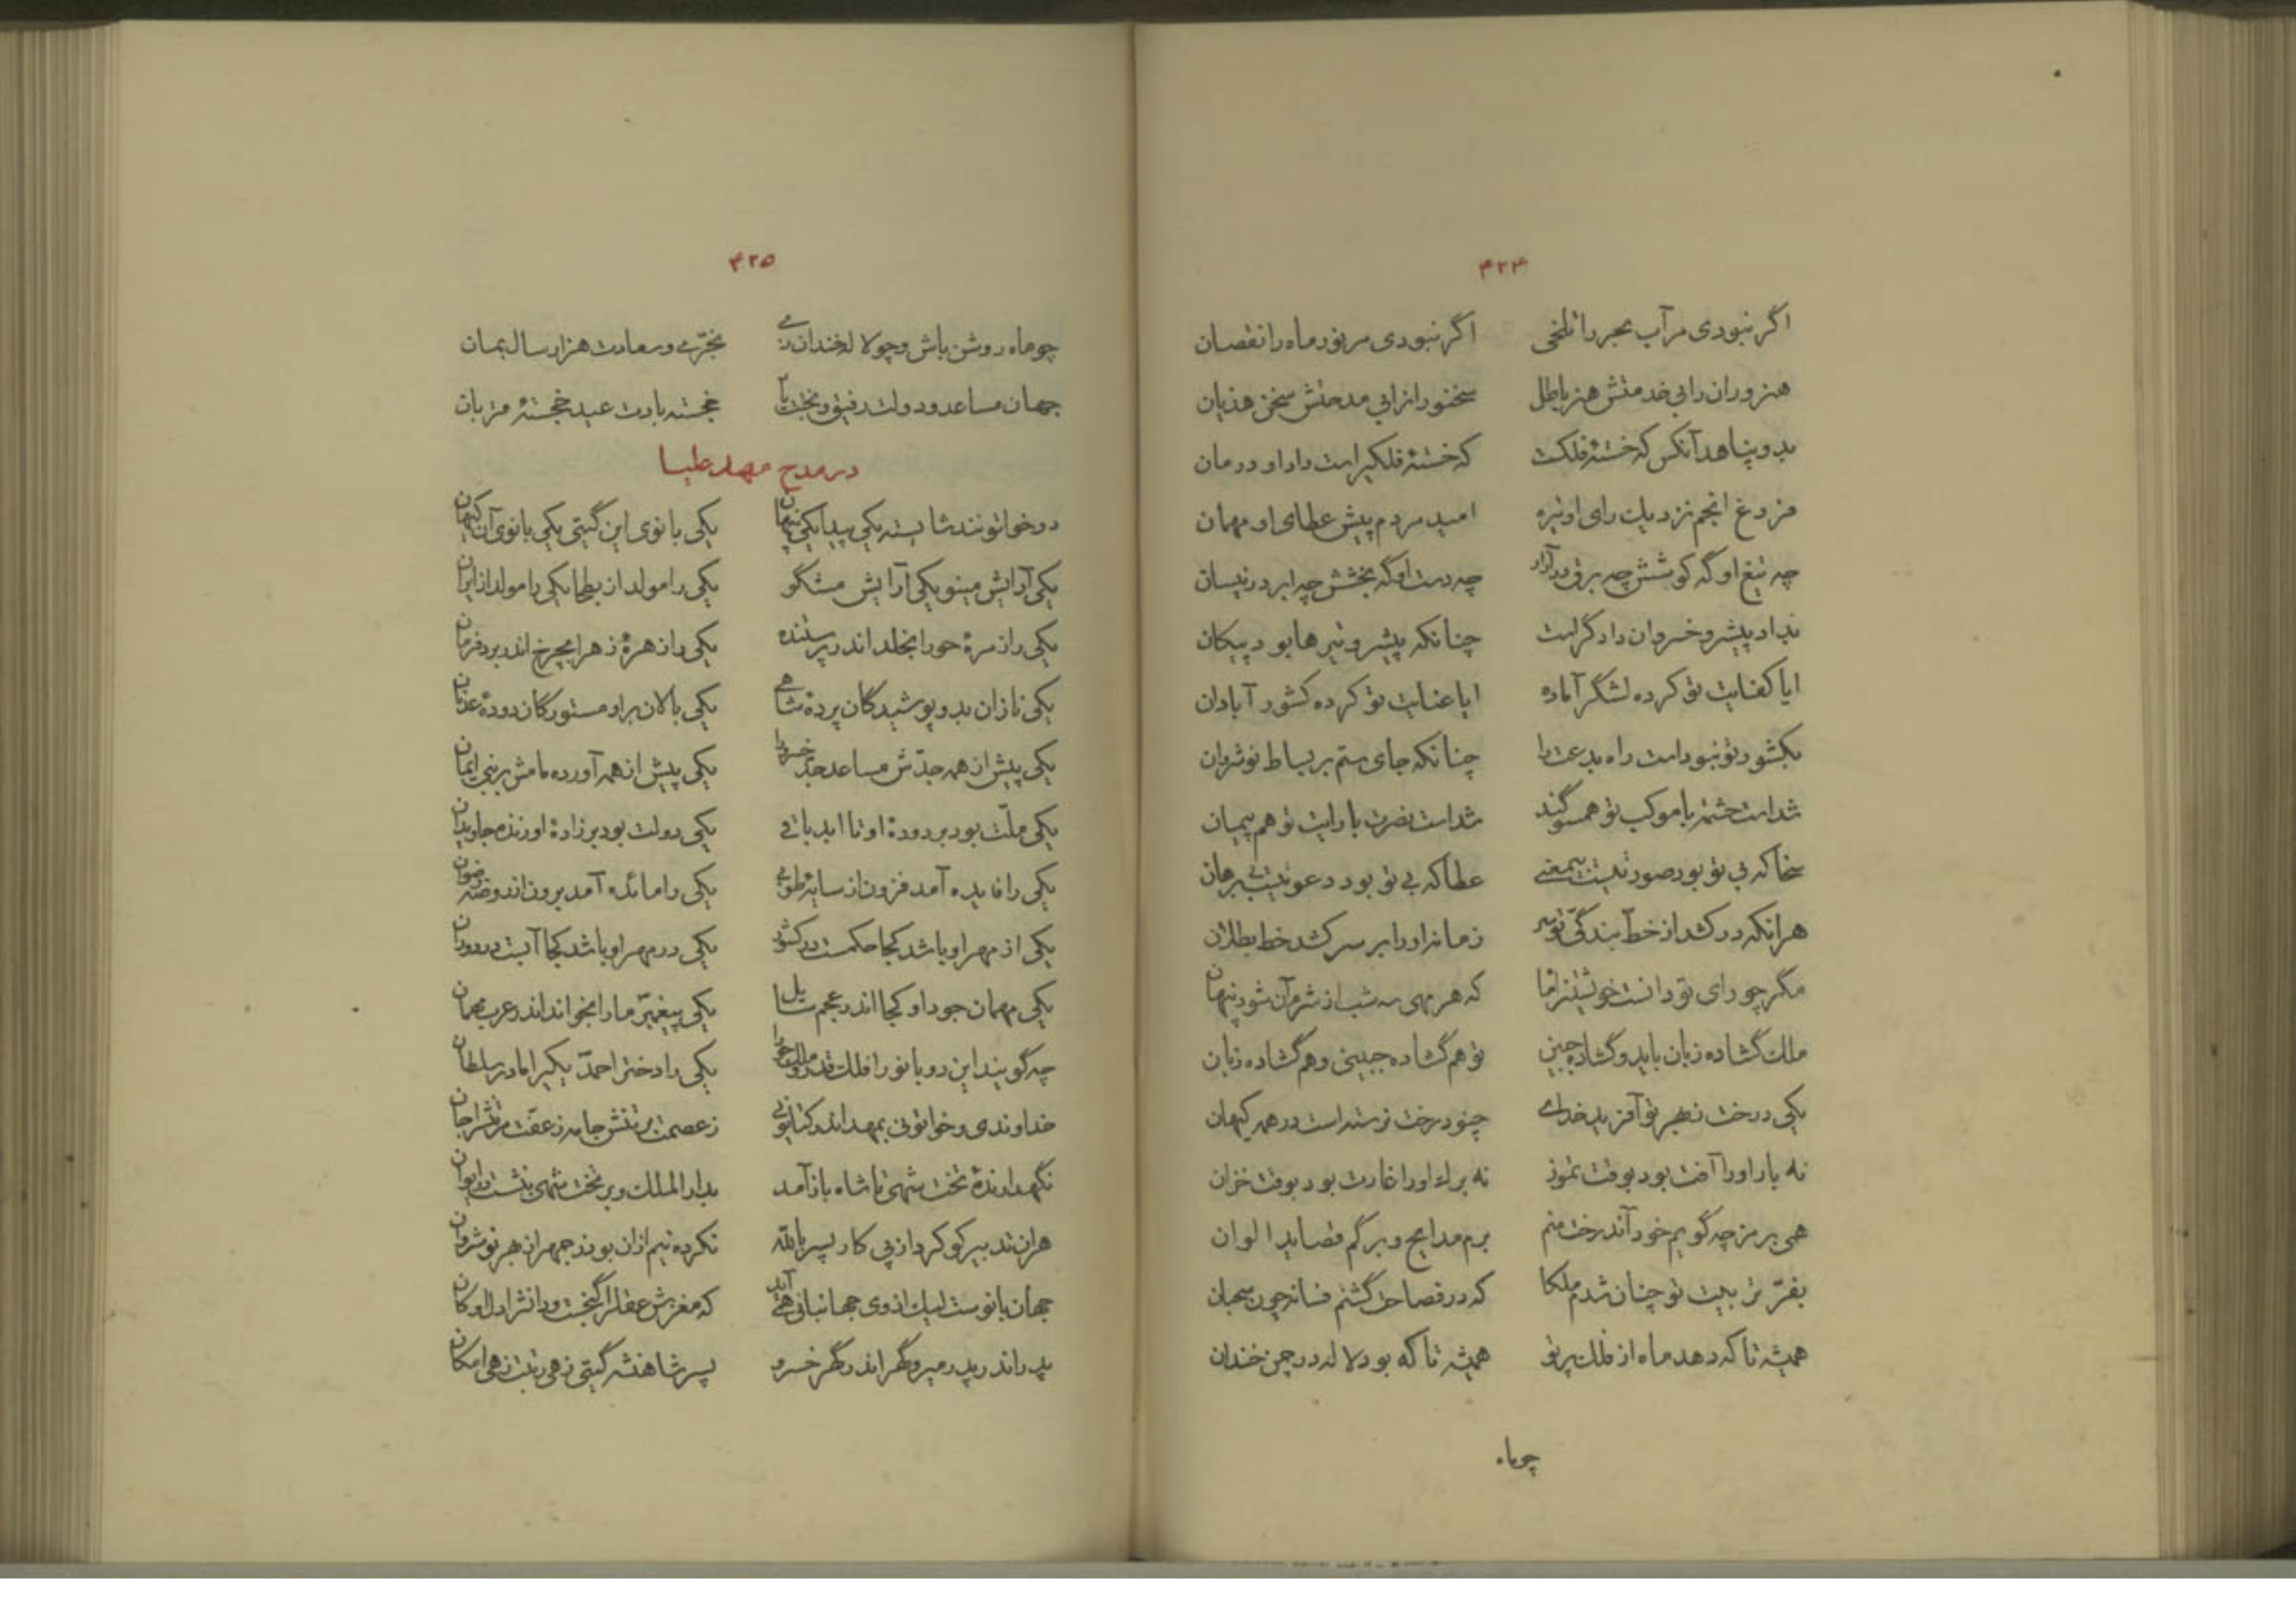 ۴۲۴
اگر نبودی مر آب بحر را تلخی اگر نبودی مر نور ماه را نقصان
هنروران را بی خدمتش هنر باطل سخنور انرا بی مدحتش سخن هذیان
بدو پناهد آنکس که خستهٔ فلکست که خستهٔ فلکیراست داد او درمان
فروغ انجم نزدیک رای او تیره امید مردم پیش عطای او مهمان
چه تیغ او گه کوشش چه برق در آزار چه دست او گه بخشش چه ابر در نیسان
بداد پیشرو خسروان دادگر است چنانکه پیشرو تیرها بود پیکان
ایا کفایت تو کرده لشگر آماده ایا عنایت تو کرده کشور آبادان
بکشور تو نبود است راه بدعت را چنانکه جای ستم بر بساط نوشروان
شداست حشمت با موکب تو همسوگند شداست نصرت با رایت تو هم پیمان
سخا که بی تو بود صورتیست بیمعنی عطا که بی تو بود دعویست بی برهان
هرانکه درکشد از خطّ بندگیّ تو سر زمانه او را بر سر کشد خط بطلان
مگر چو رای تو دانست خویشتن را ماه که هر مهی سه شب از شرم آن شود پنهان
ملک گشاده زبان باید و گشاده جبین تو هم گشاده جبینی و هم گشاده زبان
یکی درخت نظیر تو آفرید خدای چنو درخت نرسته است در همه کیهان
نه بار او را آفت بود بوقت تموز نه برگ او را غارت بود بوقت خزان
همی برمز چه گویم خود آن درخت منم برم مدایح و برگم قصاید الوان
بفرّ تربیت تو چنان شدم ملکا که در فصاحت گشتم فسانه چون سحبان
همیشه تا که دهد ماه از فلک پرتو همیشه تا که بود لاله در چمن خندان
چوماه
۴۲۵
چو ماه روشن باش و چو لاله خندان زی بخرّمی و سعادت هزار سال بمان
جهان مساعد و دولت رفیق و بخت یار خجسته بادت عید خجستهٔ قربان
در مدح مهد علیا
دو خواتونند شایسته یکی پیدا یکی پنهان یکی بانوی این گیتی یکی بانوی آن کیهان
یکی آرایش مینو یکی آرایش مشگو یکی را مولد از بطحا یکی را مولد از ایران
یکی را زمرهٔ حورا بخلد اندر پرستنده یکی را زهرهٔ زهرا بچرخ اندر برد فرمان
یکی نازان بدو پوشیدگان پردهٔ شاهی یکی بالان براو مستورگان دودهٔ عدنان
یکی پیش از همه جدّش مساعد جدّ خسرو را یکی پیش از همه آورده مامش بر نبی ایمان
یکی ملّت بود بر دودهٔ او تا ابد باقی یکی دولت بود بر زادهٔ او زنده جاویدان
یکی را فایده آمد فزون از سایهٔ طوبی یکی را مائده آمد برون از روضهٔ رضوان
یکی از مهر او باشد کجا حکمست در کشور یکی در مهر او باشد کجا آیت در دوران
یکی مهمان جود او کجا اندر عجم سایل یکی پیغمبر ما را بخواند اندر عرب مهمان
چه گویند این دو بانو را فلک قدر و ملک خو را یکی را دختر احمدّ یکیرا مادر سلطان
خداوندی و خواتونی بمهد اندر کتابونی ز عصمت بر تنش جامه ز عفّت مر تنشرا جان
نگهدارندهٔ تخت شهی تا شاه باز آمد بدار الملک و بر تخت شهی بنشست در ایوان
هران تدبیر کو کرد از پی کار پسر بالله نکرده نیم ازان بوذرجمهر از بهر نوشروان
جهان بانوست لیک از وی جهانبانی همی آید که مغزش عقل را گنجست و دانش را دل او کان
پدر اندر پدر میر و گهر اندر گهر خسرو پسر شاهنشه گیتی زهی رتبت زهی امکان